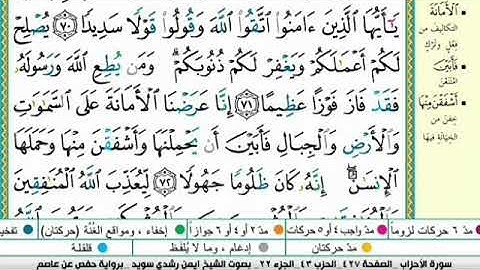 يَٰٓأَيُّهَا ٱلَّذِينَ ءَامَنُوا۟ ٱتَّقُوا۟ ٱللَّهَ وَقُولُوا۟ قَوْلًا سَدِيدًا ٧٠ يُصْلِحْ
لَكُمْ أَعْمَٰلَكُمْ وَيَغْفِرْ لَكُمْ ذُنُوبَكُمْ ۗ وَمَن يُطِعِ ٱللَّهَ وَرَسُولَهُۥ
فَقَدْ فَازَ فَوْزًا عَظِيمًا ٧١ إِنَّا عَرَضْنَا ٱلْأَمَانَةَ عَلَى ٱلسَّمَٰوَٰتِ
وَٱلْأَرْضِ وَٱلْجِبَالِ فَأَبَيْنَ أَن يَحْمِلْنَهَا وَأَشْفَقْنَ مِنْهَا وَحَمَلَهَا
ٱلْإِنسَٰنُ ۖ إِنَّهُۥ كَانَ ظَلُومًا جَهُولًا ٧٢ لِّيُعَذِّبَ ٱللَّهُ ٱلْمُنَٰفِقِينَ
الْأَمَانَةَ
التكاليف من
فِعْلٍ وتَرْكٍ
فَأَبَيْنَ
امْتَنَعْنَ
أَشْفَقْنَ مِنْهَا
خِفْنَ من
الخيانة فيها
مدّ ٦ حركات لزوماً مدّ واجب ٤ أو ٥ حركات مدّ ٢ أو ٤ أو ٦ جوازاً إخفاء، ومواقع الغُنَّة (حركتان) تفخيم
مدّ حركتان إدغام، وما لا يُلفظ قلقلة
سورة الأحزاب الصفحة ٤٢٧ الحزب ٤٣ الجزء ٢٢ بصوت الشيخ ايمن رشدي سويد .. برواية حفص عن عاصم